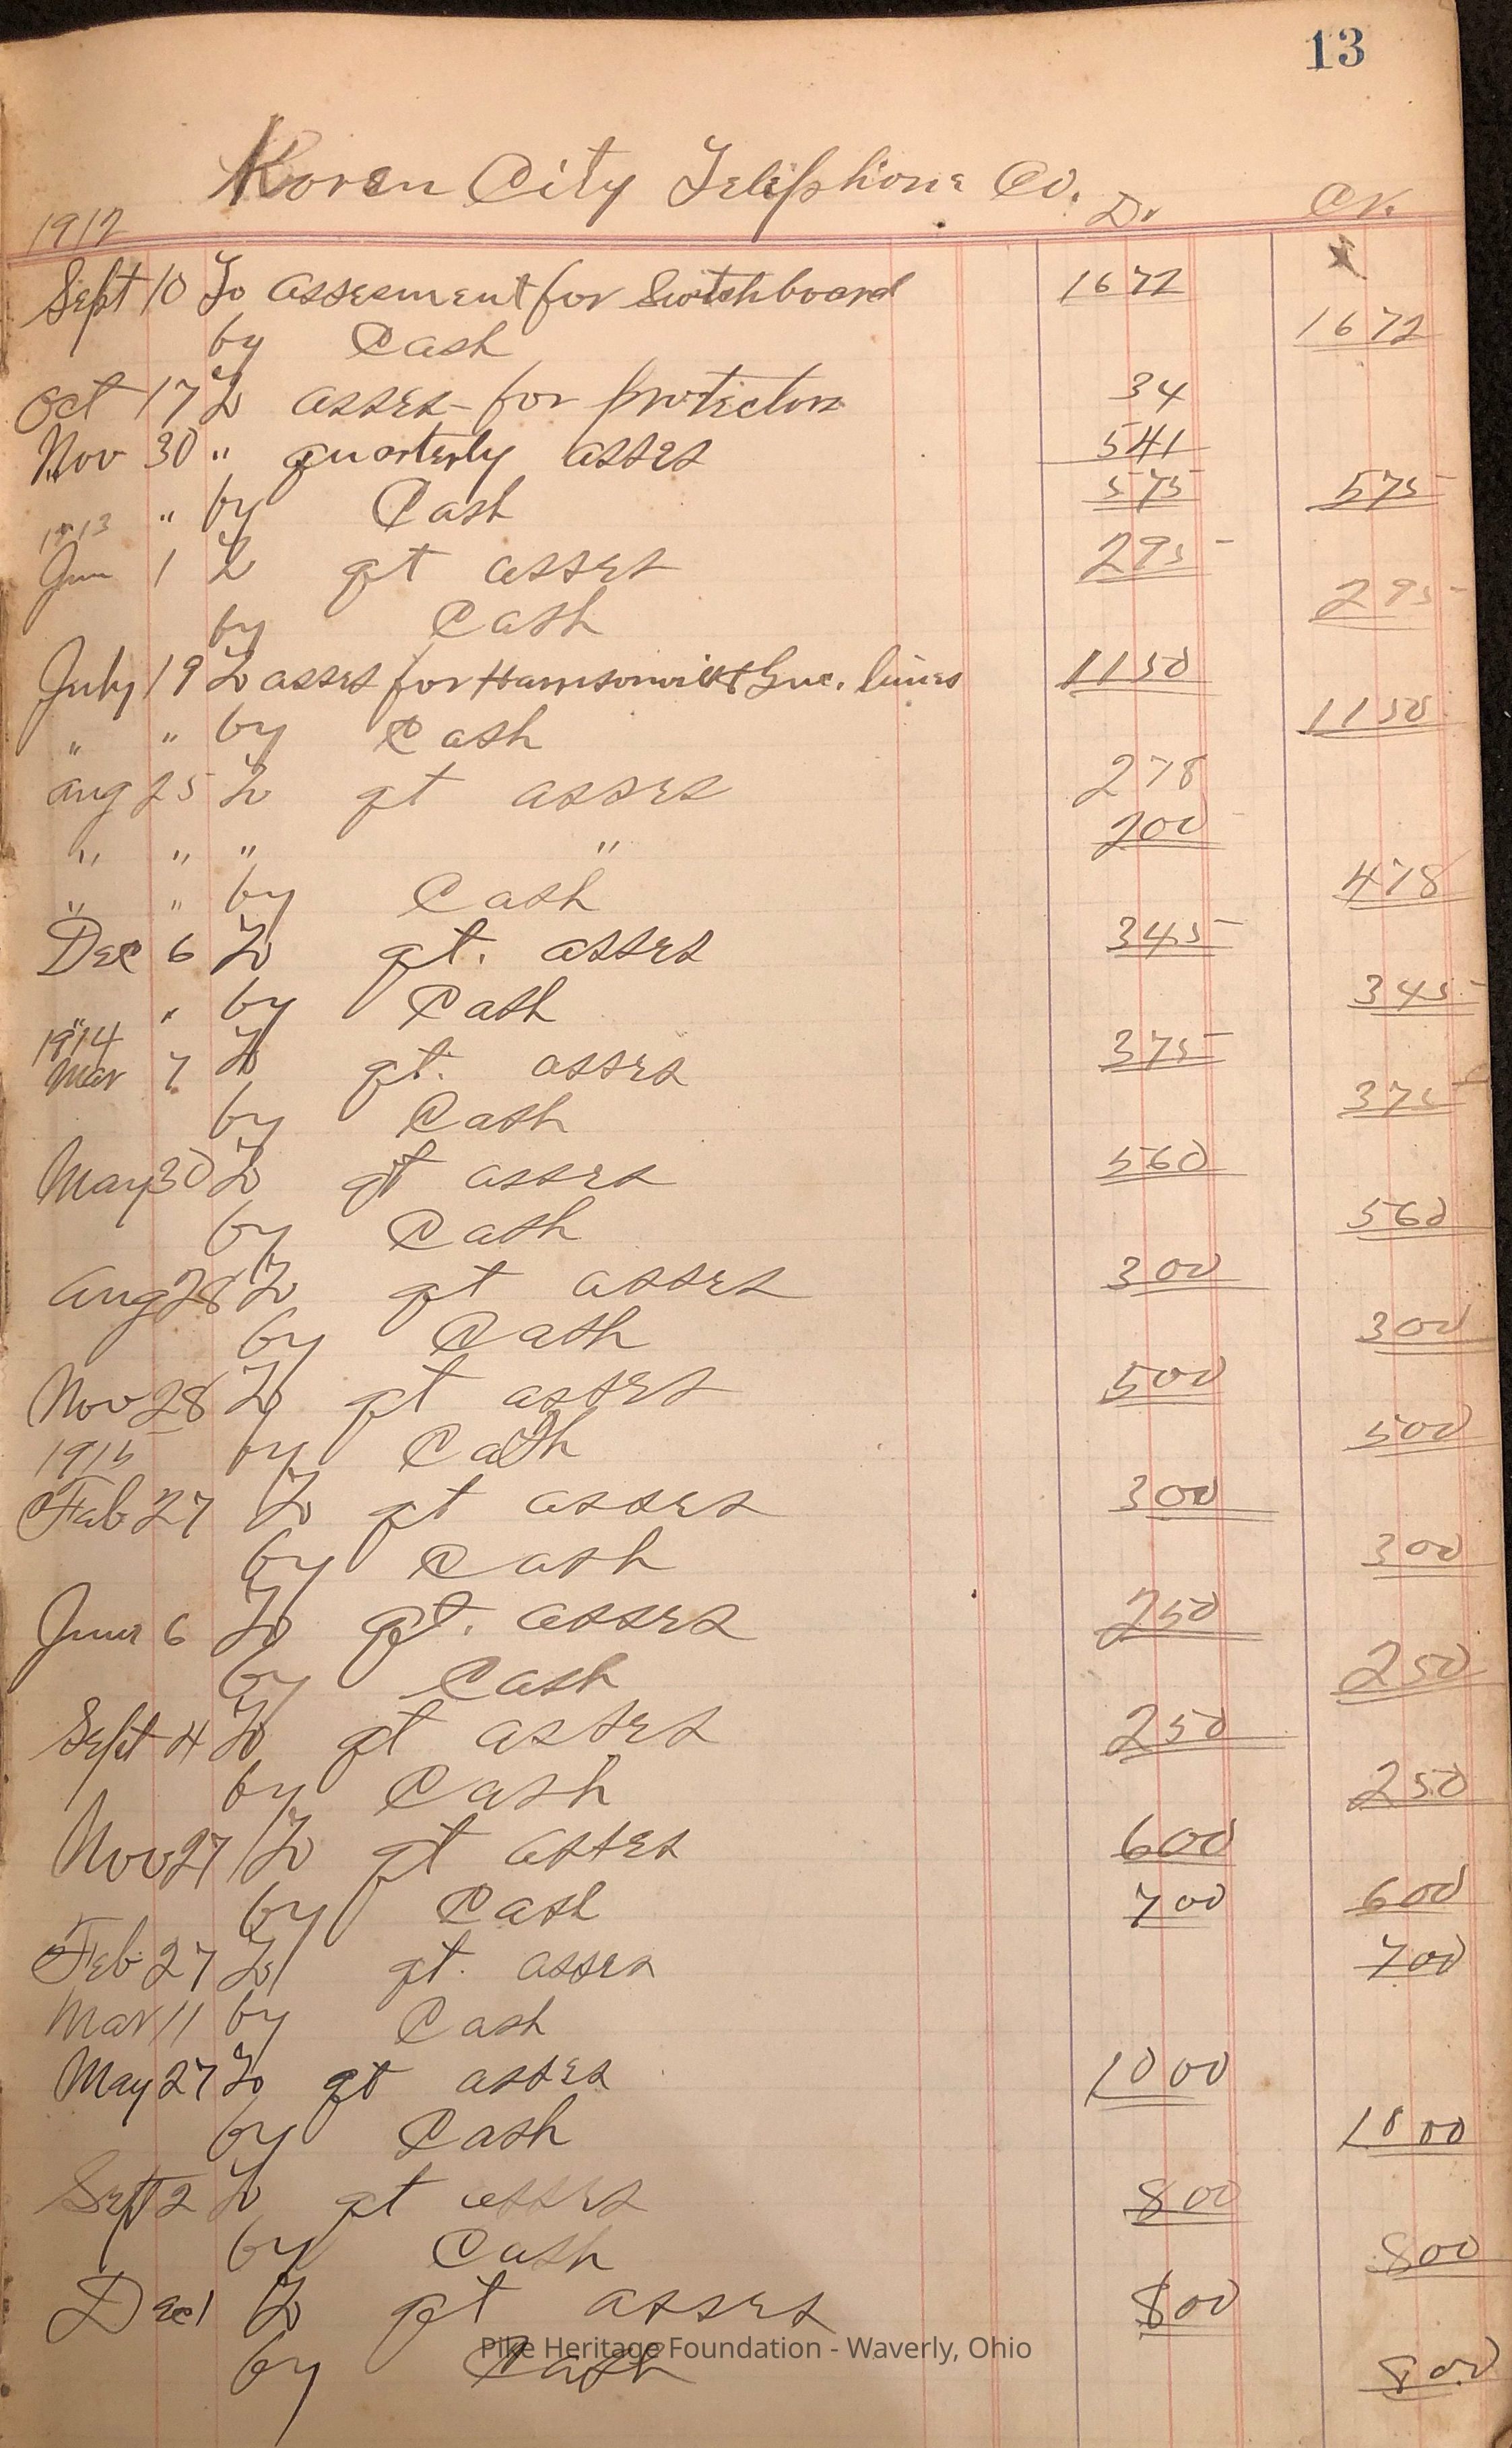 13
Koven City Telephone Co. Dr Cr.
1912
Sept 10 To assesment for Switchboard 1672
by Cash 1672
Oct 17 To asses for protectors 34
Nov 30 " quarterly asses 541
575
" by Cash 575
1913
Jun 1 To qt asses 295
by Cash 295
July 19 To asses for lines 1150
" " by Cash 1150
Aug 25 To qt asses 278
" " " " 200
" " by Cash 478
Dec 6 To qt. asses 345
" " by Cash 345
1914
Mar 7 To qt. asses 375
by Cash 375
May 30 To qt asses 560
by Cash 560
Aug 28 To qt asses 300
by Cash 300
Nov 28 To qt asses 500
by Cash 500
1915
Feb 27 To qt asses 300
by Cash 300
June 6 To qt. asses 250
by Cash 250
Sept 4 To qt asses 250
by Cash 250
Nov 27 To qt asses 600
by Cash 600
Feb 27 To qt. asses 700
Mar 11 by Cash 700
May 27 To qt asses 1000
by Cash 1000
Sept 2 To qt asses 800
by Cash 800
Dec 1 To qt asses 800
by Cash 800
Pike Heritage Foundation - Waverly, Ohio